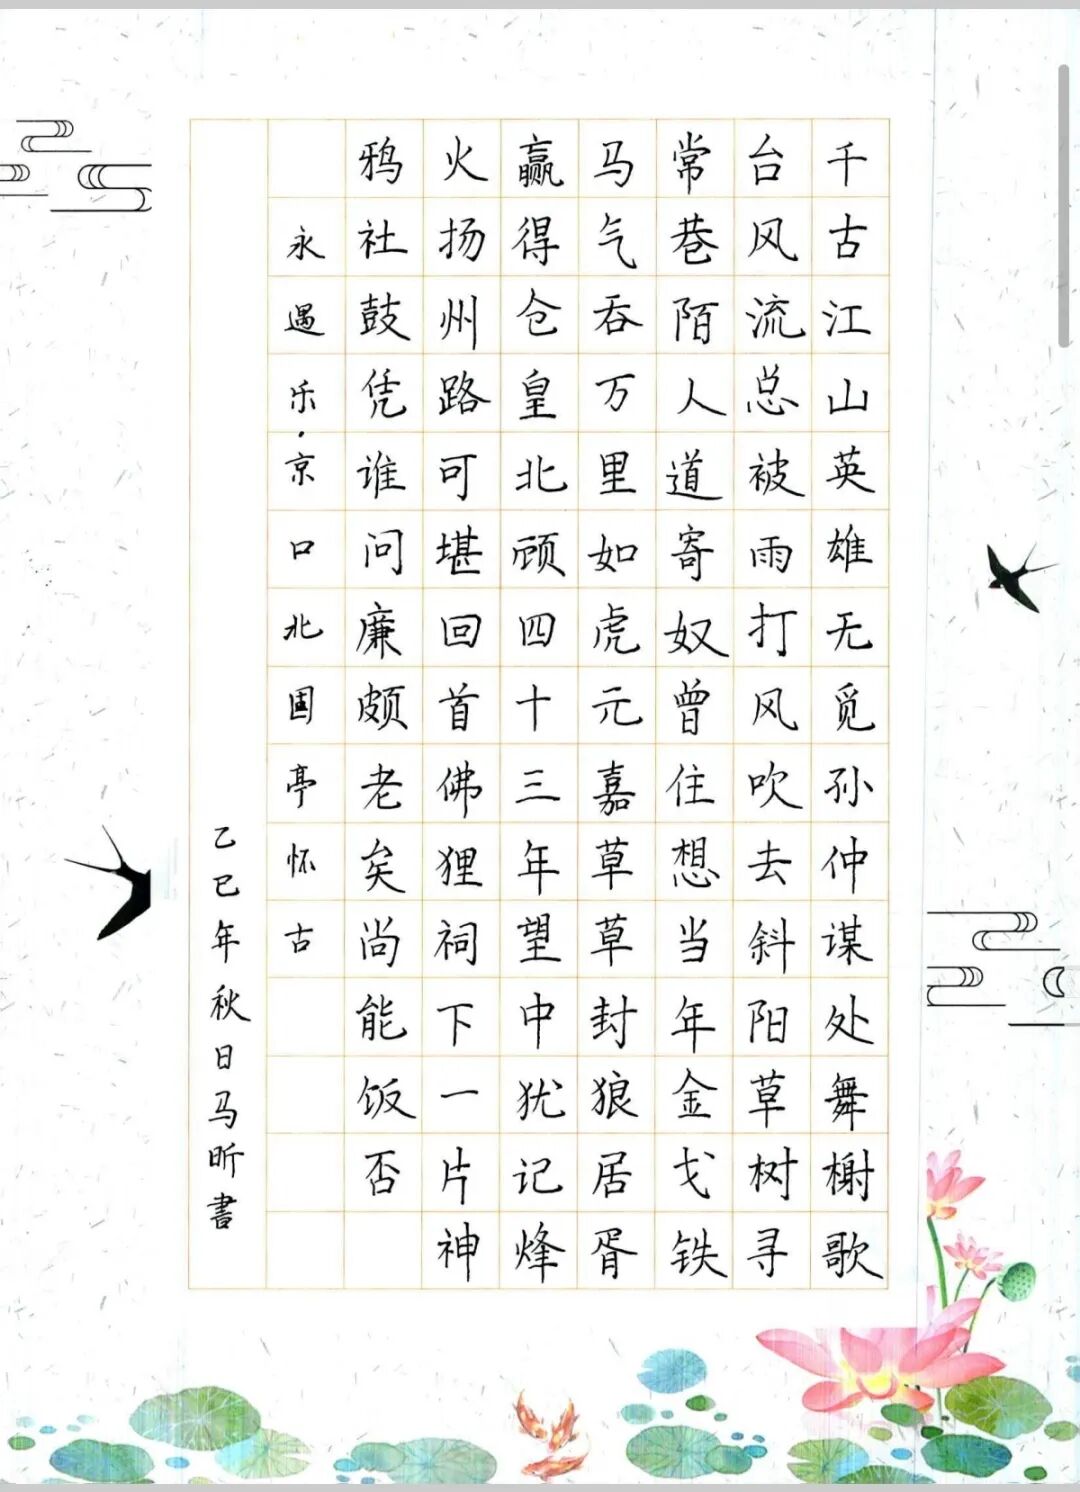 千古江山英雄无觅孙仲谋处舞榭歌
台风流总被雨打风吹去斜阳草树寻
常巷陌人道寄奴曾住想当年金戈铁
马气吞万里如虎元嘉草草封狼居胥
赢得仓皇北顾四十三年望中犹记烽
火扬州路可堪回首佛狸祠下一片神
鸦社鼓凭谁问廉颇老矣尚能饭否
永遇乐·京口北固亭怀古
乙巳年秋日马昕書